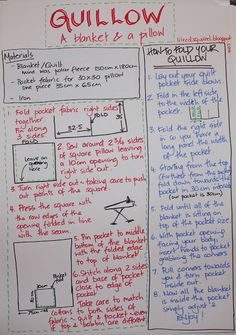 QUILLOW
A blanket & a pillow
tiredsquirrel.blogspot
Materials
- Blanket/Quilt
mine was polar fleece 150cm x 180cm
- Pocket fabric for 30x30 pillow
one piece 35cm x 65cm
- Iron
1. Fold pocket fabric right sides
together.
Pin along
3 sides.
32.5
FOLD
35
2. Sew around 2 3/4 sides
of square Pillow leaving
a 10cm opening to turn
right side out
Leave an
opening
here
3. Turn right side out - taking care to push
out points of the square
4. Press the square with
the raw edges of the
opening folded in line
with the seam
5. Pin pocket to middle
bottom of the blanket
with the folded edge
to top of blanket
6. Stitch along 2 sides
and base of pocket
close to edge of
pocket
Take care to match
cottons to both sides of
fabric - Quilt & pocket - even
if top & bobbin are different
HOW TO FOLD YOUR
QUILLOW
1. Lay out your quilt
pocket side down
2. Fold in the left side
to the width of the
pocket
3. Fold the right side
in so you have a
long panel the width
of the pocket
4. Starting from the top
(furthest from the pocket)
fold down towards you
in 30cm intervals
(our pocket is 30cm)
5. Fold until all of
the blanket is sitting on
top of the pocket
6. With pocket opening
facing your body,
insert hands to pocket
grabbing the corners
7. Roll corners towards
you & turn pocket
inside out
8. Now all the blanket
is inside the pocket
simply adjust &
Enjoy!